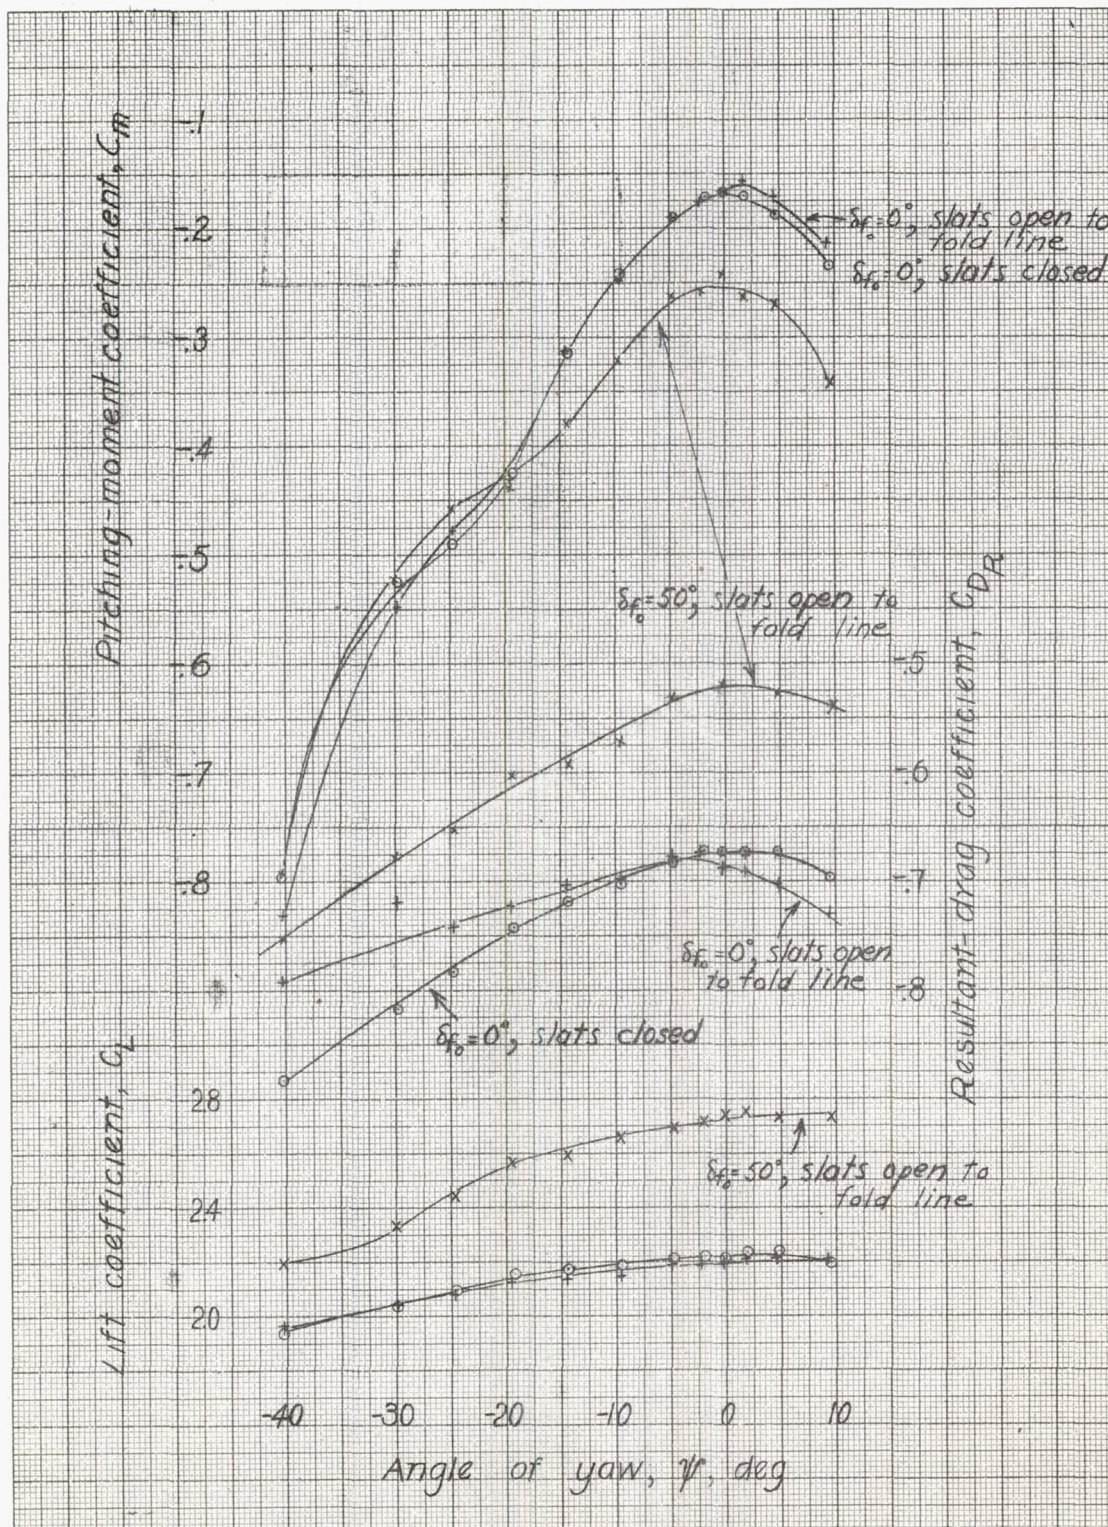 Pitching-moment coefficient, Cm
-.1
-.2
-.3
-.4
-.5
-.6
-.7
-.8
δf₀=0°, slats open to
fold line
δf₀=0°, slats closed
δf₀=50°, slats open to
fold line
Resultant-drag coefficient, CDR
-.5
-.6
-.7
-.8
δf₀=0°, slats open
to fold line
δf₀=0°, slats closed
Lift coefficient, CL
2.8
2.4
2.0
δf₀=50°, slats open to
fold line
-40 -30 -20 -10 0 10
Angle of yaw, ψ, deg